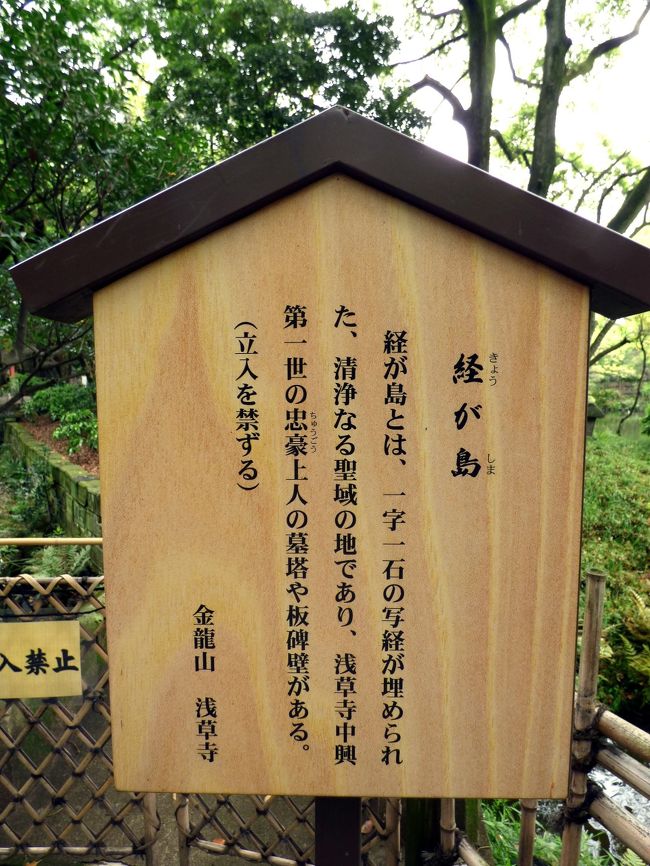 経が島
きょう
しま
経が島とは、一字一石の写経が埋められ
た、清浄なる聖域の地であり、浅草寺中興
第一世の忠豪上人の墓塔や板碑壁がある。
ちゅうごう
（立入を禁ずる）
金龍山 浅草寺
入禁止